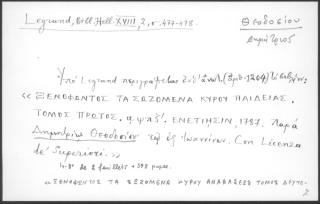 Legrand, Bibl. Hell. XVIII, 2, σ. 477-478.
Θεοδοσίου
Δημήτριος
Ὑπὸ Legrand περιγράφεται (ἀριθ. 1204)
« ΞΕΝΟΦΩΝΤΟΣ ΤΑ ΣΩΖΟΜΕΝΑ ΚΥΡΟΥ ΠΑΙΔΕΙΑΣ.
ΤΟΜΟΣ ΠΡΩΤΟΣ. ΕΝΕΤΙΗΣΙΝ, 1787. Παρὰ
Δημητρίῳ Θεοδοσίου τῷ ἐξ Ἰωαννίνων. Con Licenza
de' Superiori. »
in-8° de 2 feuillets +
« ΞΕΝΟΦΩΝΤΟΣ ΤΑ ΣΩΖΟΜΕΝΑ ΚΥΡΟΥ ΑΝΑΒΑΣΕΩΣ ΤΟΜΟΣ